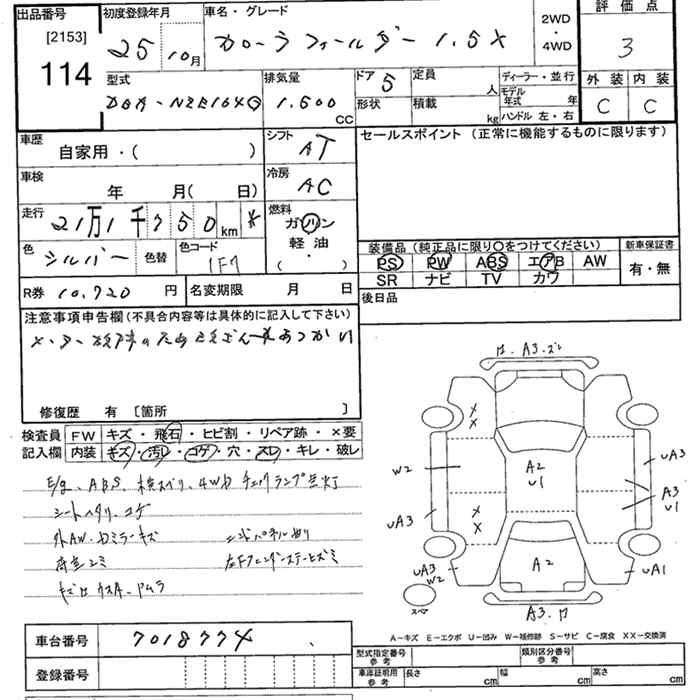 出品番号
[2153]
114
初度登録年月
25 10月
車名・グレード
カローラ フィールダー 1.5X
2WD
・
4WD
評価点
3
外装 内装
C C
型式
DBA-NZE164G
排気量
1.500
CC
ドア 5
定員 人
形状
積載 kg
ディーラー・並行
モデル年式 年
ハンドル 左・右
車歴
自家用・( )
シフト
AT
セールスポイント (正常に機能するものに限ります)
車検
年 月( 日)
冷房
AC
走行
21万1千750 km *
燃料
ガソリン
軽油
( ・ )
色
シルバー
色替
色コード
1F7
装備品 (純正品に限り○をつけてください)
新車保証書
PS PW ABS エアB AW
SR ナビ TV カワ
有・無
R券 10.720 円
名変期限 月 日
後日品
注意事項申告欄 (不具合内容等は具体的に記入して下さい)
修復歴 有 [箇所 ]
検査員記入欄
FW キズ・飛石・ヒビ割・リペア跡・×要
内装 キズ・汚レ・コゲ・穴・スレ・キレ・破レ
E/g、ABS、横スベリ、4WD チェックランプ点灯
シートヘタリ、コゲ
外AW・ドミラーキズ
A3
X
X
W2
A2
U1
UA3
A3
U1
UA3
X
X
UA3
W2
A2
UA1
スペア
A3
A−キズ E−エクボ U−凹み W−補修跡 S−サビ C−腐食 XX−交換済
車台番号 7018774
登録番号
型式指定番号
参考
類別区分番号
参考
車庫証明用
参考
長さ cm 幅 cm 高さ cm